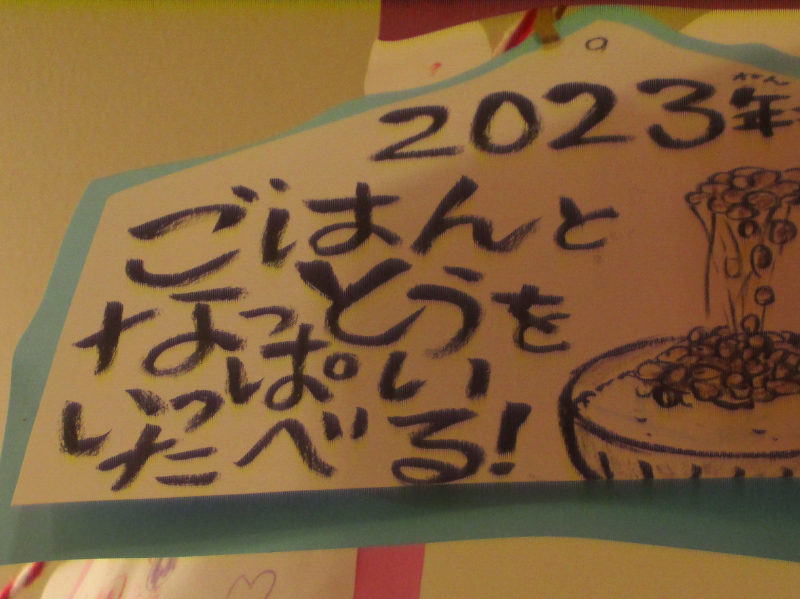 2023年
ごはんと
なっとうを
いっぱい
たべる!